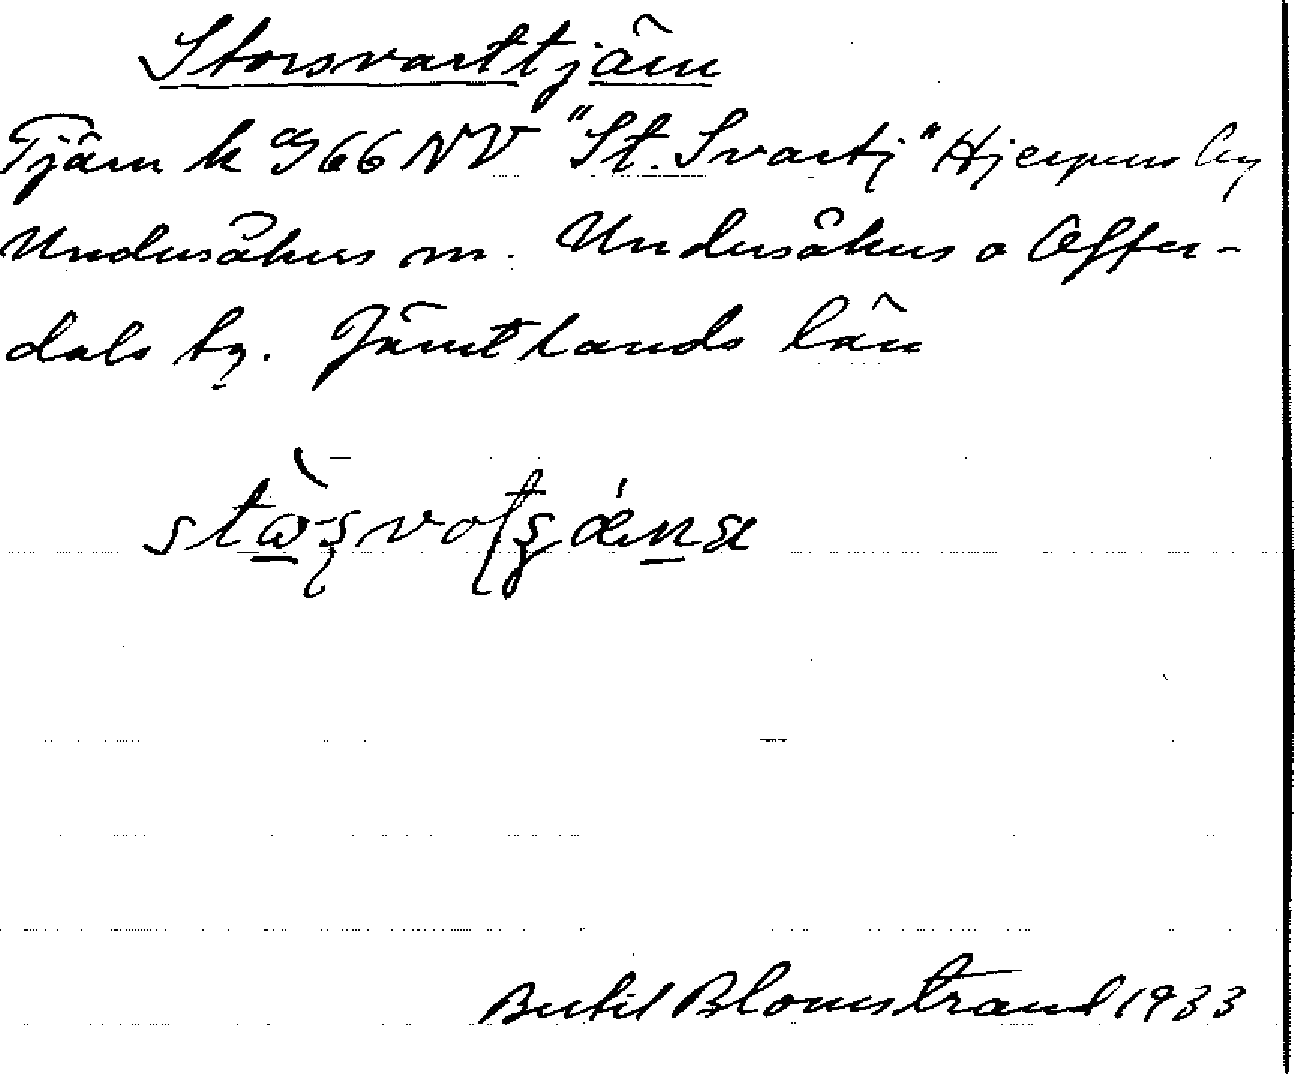 Storsvarttjärn
Tjärn k G66 NV "St. Svartj" Hjerpens by
Undersåkers sn. Undersåkers o Offer-
dals tg. Jämtlands län
Bertil Blomstrand 1933